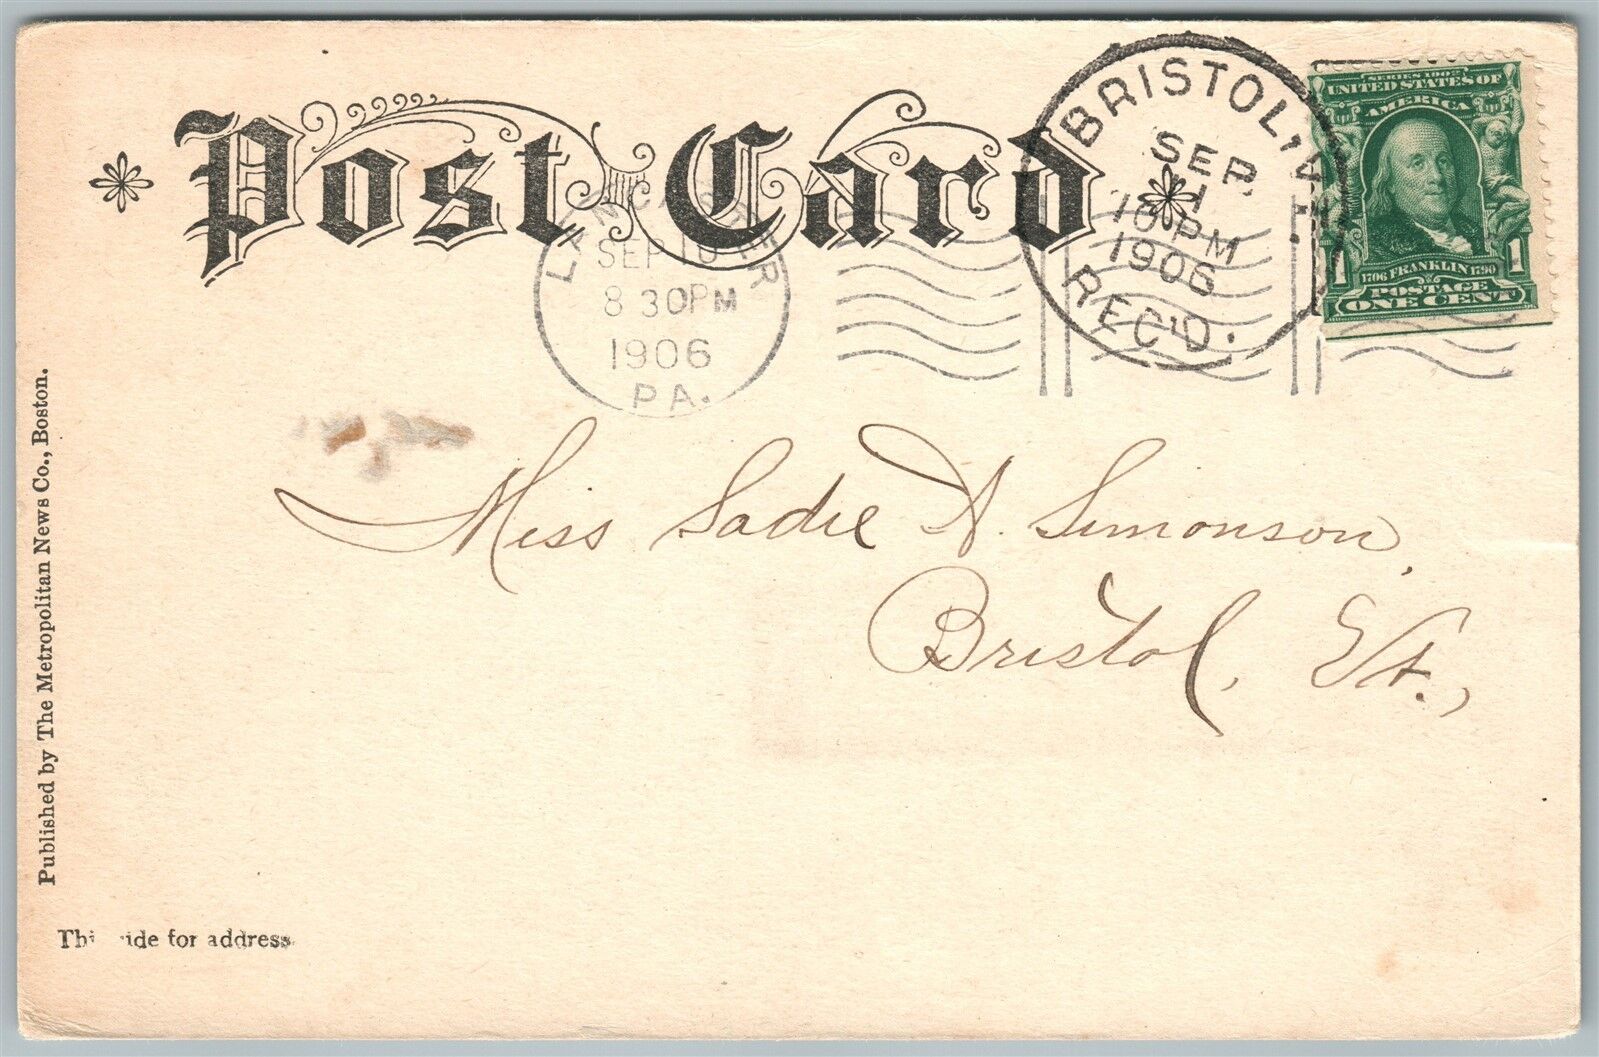 Post Card
LANCASTER
SEP 10
8 30 PM
1906
PA.
BRISTOL,
SEP
10 PM
1906
REC'D.
SERIES 1902
UNITED STATES OF
AMERICA
1706 FRANKLIN 1790
1 1
POSTAGE
ONE CENT
Miss Sadie A. Simonson,
Bristol, Vt.,
Published by The Metropolitan News Co., Boston.
for address